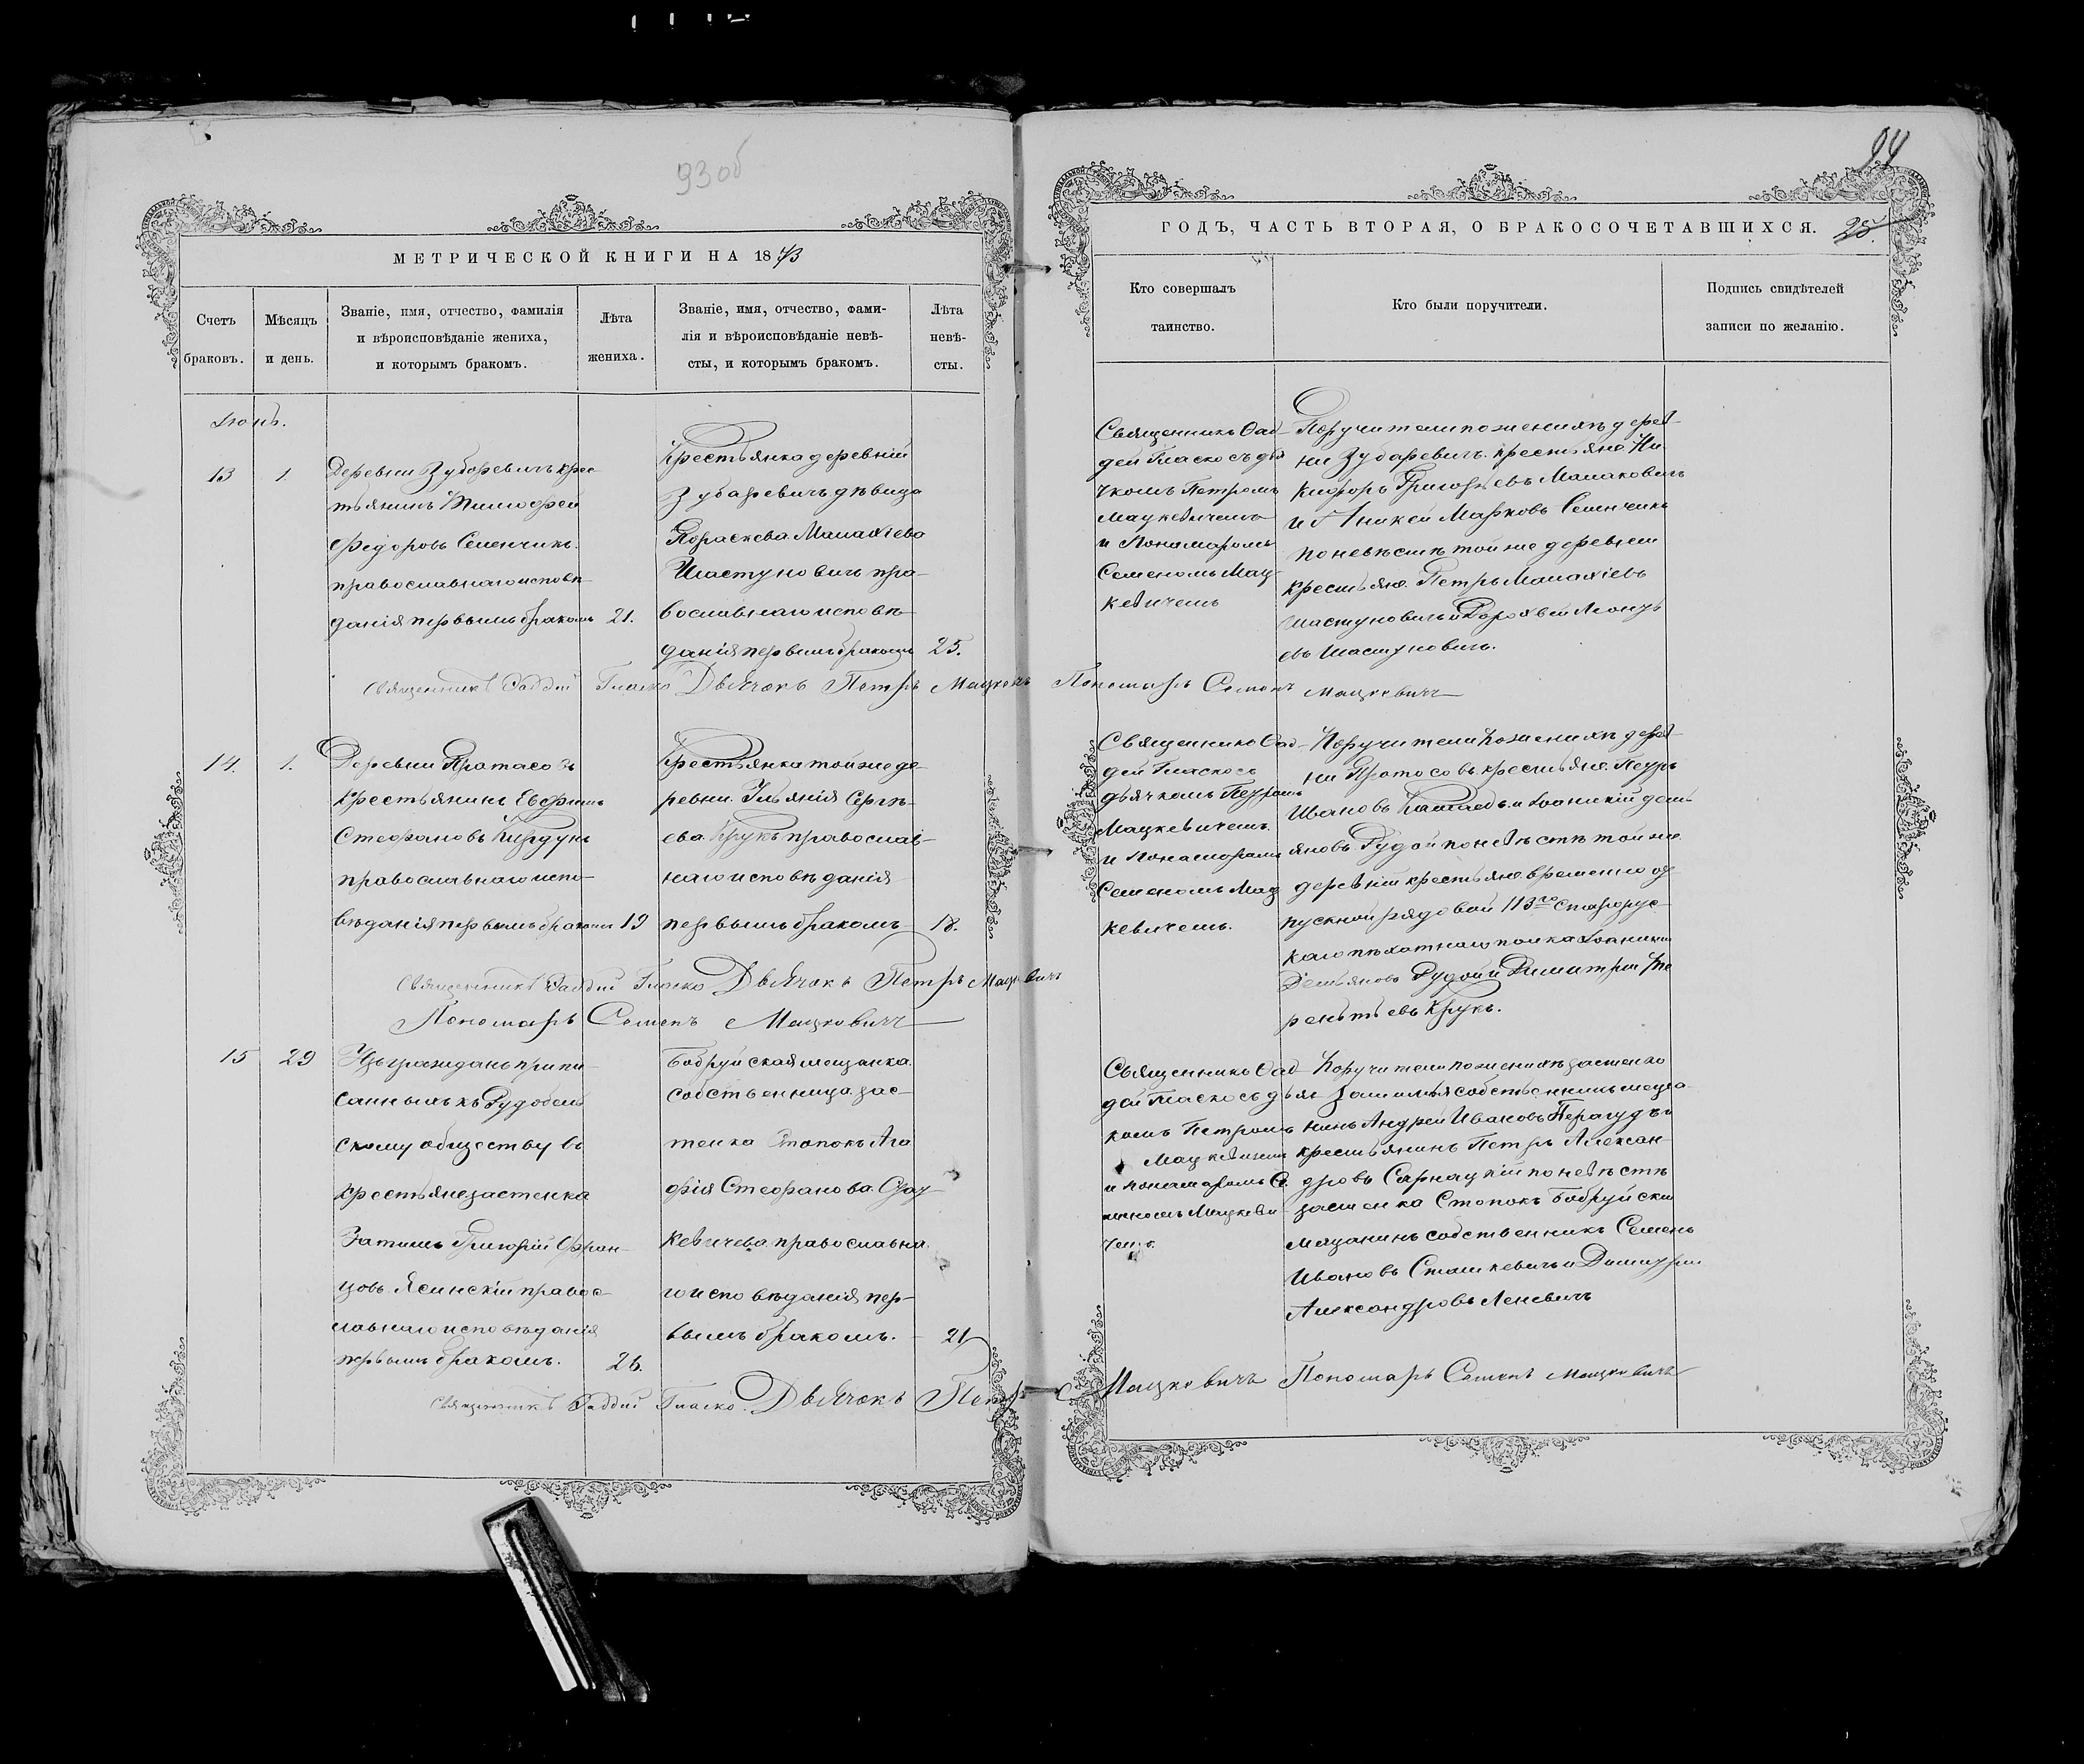 93об
МЕТРИЧЕСКОЙ КНИГИ НА 1873
Счетъ
браковъ.
Мѣсяцъ
и день.
Званіе, имя, отчество, фамилія
и вѣроисповѣданіе жениха,
и которымъ бракомъ.
Лѣта
жениха.
Званіе, имя, отчество, фами-
лія и вѣроисповѣданіе невѣ-
сты, и которымъ бракомъ.
Лѣта
невѣ-
сты.
13
1.
Деревни Зубаревичъ крес
тьянинъ Тимофей
Федоровъ Семенчикъ.
православнаго исповѣ-
данія первымъ бракомъ
21.
Крестьянка деревни
Зубаревичъ дѣвица
Параскева Малахіева
Шастуновичъ пра-
вославнаго исповѣ
данія первымъ бракомъ
25.
Священникъ Фаддей Гласко Дьячокъ Петръ Мацкевичъ Пономаръ Семенъ Мацкевичъ
14.
1.
Деревни Протасовъ
крестьянинъ Ефримъ
Стефановъ
православнаго испо-
вѣданія первымъ бракомъ
19
Крестьянка той же де
ревни. Ульянія Сергѣ-
ева Крукъ православ-
наго исповѣданія
первымъ бракомъ
18.
Священникъ Фаддей Гласко Дьячокъ Петръ Мацкевичъ
Пономаръ Семенъ Мацкевичъ
15
29
Изъ гражданъ припи-
санныхъ къ Рудобель
скому обществу въ
крестьяне застенка
Затишь Григорій Фран-
цовъ Ясинскій правос-
лавнаго исповѣданія
первымъ бракомъ.
26.
Бобруйская мещанка
собственница зас-
тенка Стопокъ Ага
фія Стефанова
православна
го исповѣданія пер-
вымъ бракомъ.
21
Священникъ Фаддей Гласко. Дьячокъ Петръ Мацкевичъ Пономаръ Семенъ Мацкевичъ
94
ГОДЪ, ЧАСТЬ ВТОРАЯ, О БРАКОСОЧЕТАВШИХСЯ.
25.
Кто совершалъ
таинство.
Кто были поручители.
Подпись свидѣтелей
записи по желанію.
Священникъ Фад-
дей Гласко съ дья
чкомъ Петромъ
Мацкевичемъ
и Пономаромъ
Семеномъ Мац
кевичемъ
Поручители по женихѣ дерев-
ни Зубаревичъ крестьяне Ни
кифоръ Григорьевъ Малаковичъ
и Аникей Марковъ Семенчикъ
по невѣстѣ той же деревни
крестьяне. Петръ Малахіевъ
Шастуновичъ и Дорофей Леонть
евъ Шастуновичъ.
Священникъ Фад-
дей Гласко съ
дьячкомъ Петромъ
Мацкевичемъ
и Пономаромъ
Семеномъ Мац
кевичемъ.
Поручители по женихѣ дерев-
ни Протасовъ крестьяне. Петръ
Ивановъ и Іоаникій Демь
яновъ Рудой по невѣстѣ той же
деревни крестьяне. временно от
пускной рядовой 113го Старорус-
каго пѣхотнаго полка Іоаникій
Демьяновъ Рудой и Димитрій Те
рентьевъ Крукъ.
Священникъ Фад
дей Гласко съ дьяч
комъ Петромъ
Мацкевичемъ
и пономаромъ Се
меномъ Мацкеви
чемъ.
Поручители по женихѣ застенка
Затишья собственникъ меща
нинъ Андрей Ивановъ
крестьянинъ Петръ Алексан-
дровъ Сарнацкій по невѣстѣ
застенка Стопокъ Бобруйскій
мещанинъ собственникъ Семенъ
Ивановъ Сташкевичъ и Димитрій
Александровъ Леневичъ